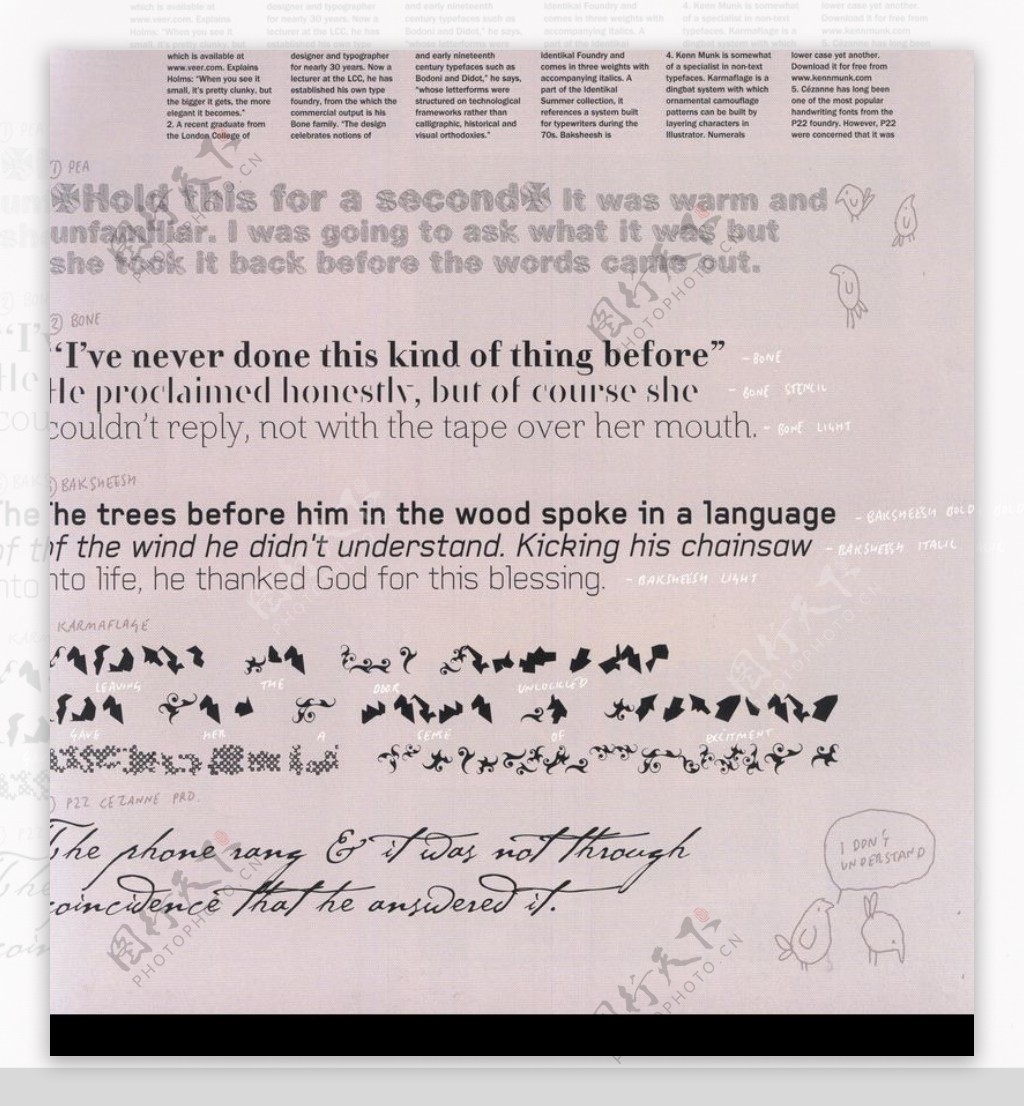 which is available at
www.veer.com. Explains
Holms: "When you see it
small, it's pretty clunky, but
the bigger it gets, the more
elegant it becomes."
2. A recent graduate from
the London College of
designer and typographer
for nearly 30 years. Now a
lecturer at the LCC, he has
established his own type
foundry, from which the
commercial output is his
Bone family. "The design
celebrates notions of
and early nineteenth
century typefaces such as
Bodoni and Didot," he says,
"whose letterforms were
structured on technological
frameworks rather than
calligraphic, historical and
visual orthodoxies."
Identikal Foundry and
comes in three weights with
accompanying italics. A
part of the Identikal
Summer collection, it
references a system built
for typewriters during the
70s. Baksheesh is
4. Kenn Munk is somewhat
of a specialist in non-text
typefaces. Karmaflage is a
dingbat system with which
ornamental camouflage
patterns can be built by
layering characters in
Illustrator. Numerals
lower case yet another.
Download it for free from
www.kennmunk.com
5. Cézanne has long been
one of the most popular
handwriting fonts from the
P22 foundry. However, P22
were concerned that it was
1 PEA
Hold this for a second It was warm and
unfamiliar. I was going to ask what it was but
she took it back before the words came out.
2 BONE
"I've never done this kind of thing before" - BONE
He proclaimed honestly, but of course she - BONE STENCIL
couldn't reply, not with the tape over her mouth. - BONE LIGHT
BAKSHEESH
The trees before him in the wood spoke in a language - BAKSHEESH BOLD
of the wind he didn't understand. Kicking his chainsaw - BAKSHEESH ITALIC
into life, he thanked God for this blessing. - BAKSHEESH LIGHT
KARMAFLAGE
LEAVING THE DOOR UNLOCKED
GAVE HER A SENSE OF EXCITMENT
P22 CEZANNE PRO.
The phone rang & it was not through
coincidence that he answered it.
I DON'T
UNDERSTAND
图行天下
PHOTOPHOTO.CN